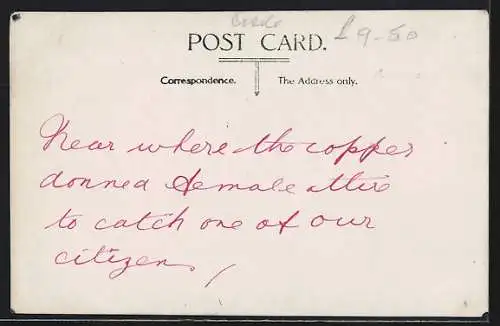 £9-50
POST CARD.
Correspondence. The Address only.
Near where the copper
donned female attire
to catch one of our
citizens